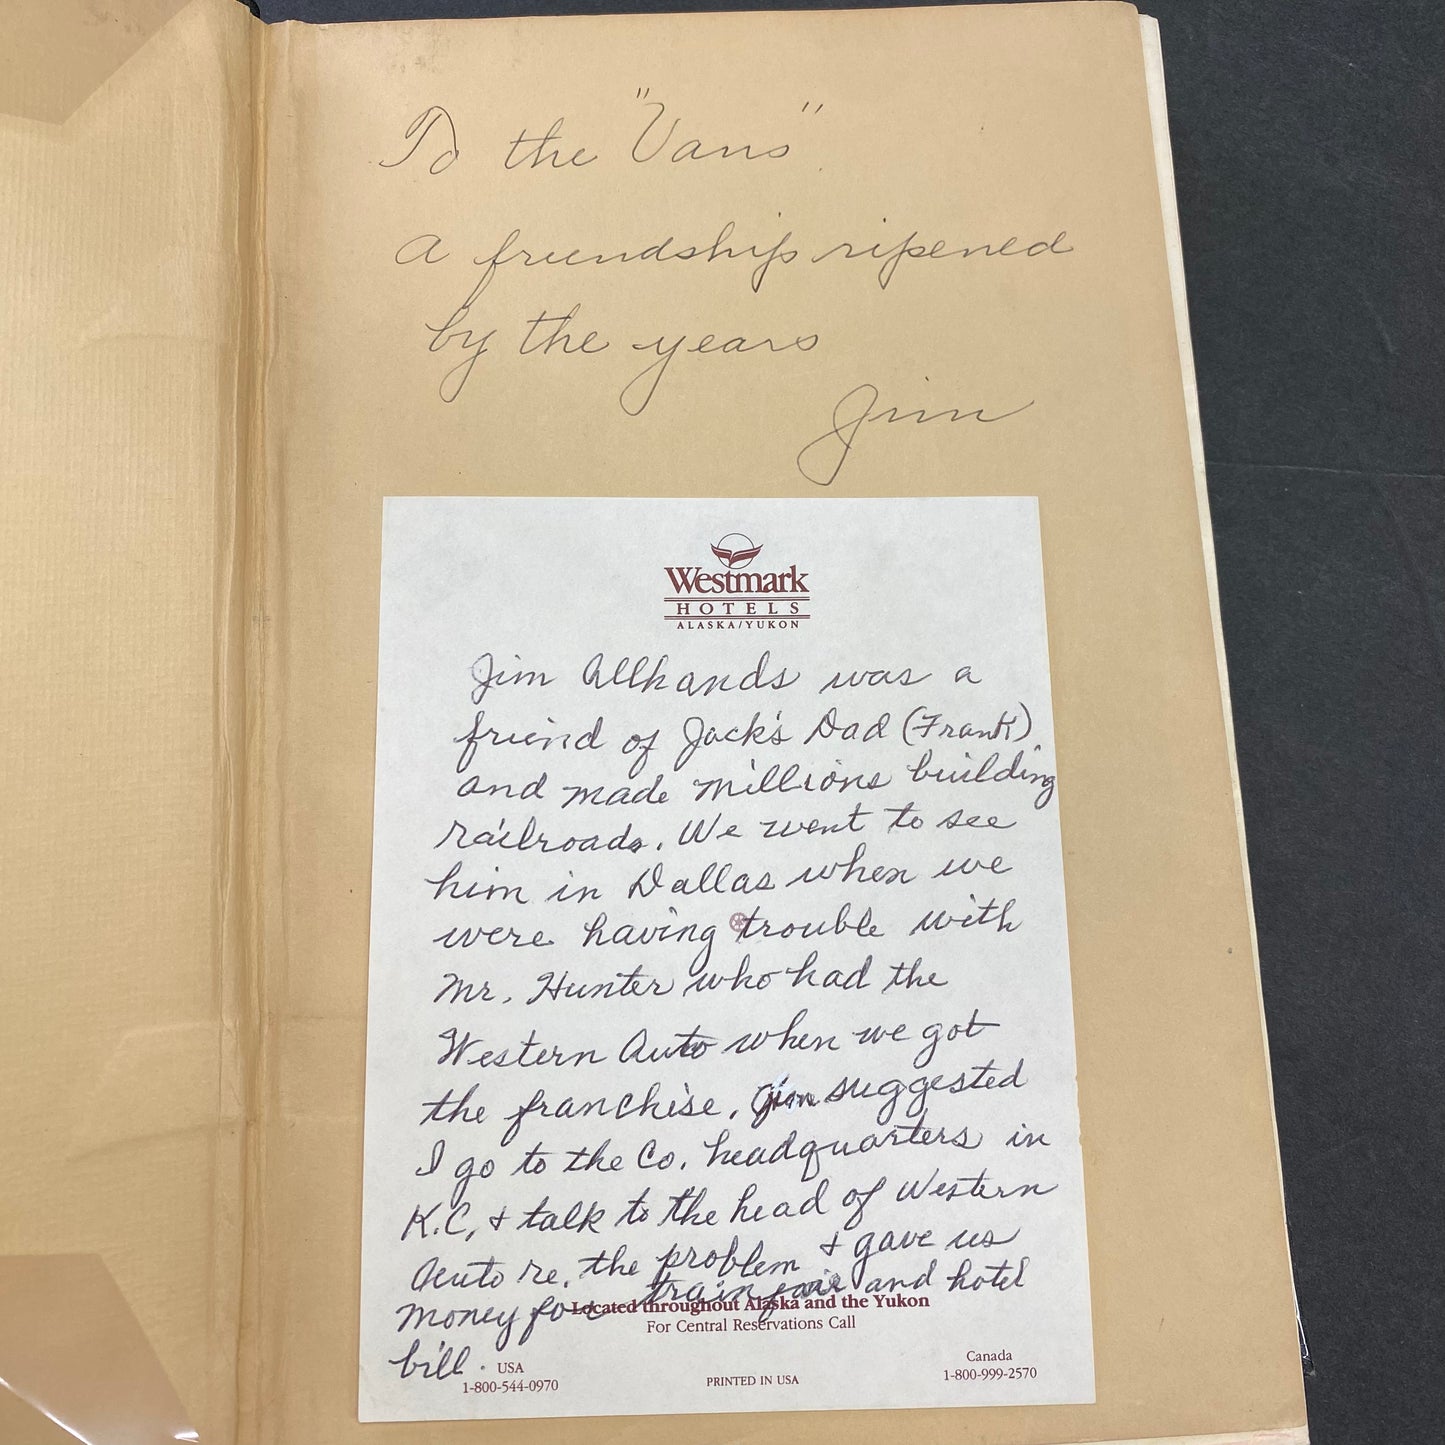 To the "Vans"
a friendship ripened
by the years
Jim
Westmark
HOTELS
ALASKA/YUKON
Jim Allhands was a
friend of Jack's Dad (Frank)
and made millions building
railroads. We went to see
him in Dallas when we
were having trouble with
Mr. Hunter who had the
Western Auto when we got
the franchise. Jim suggested
I go to the Co. headquarters in
K.C. & talk to the head of Western
Auto re. the problem & gave us
money for train fair and hotel
bill.
Located throughout Alaska and the Yukon
For Central Reservations Call
USA
1-800-544-0970
PRINTED IN USA
Canada
1-800-999-2570